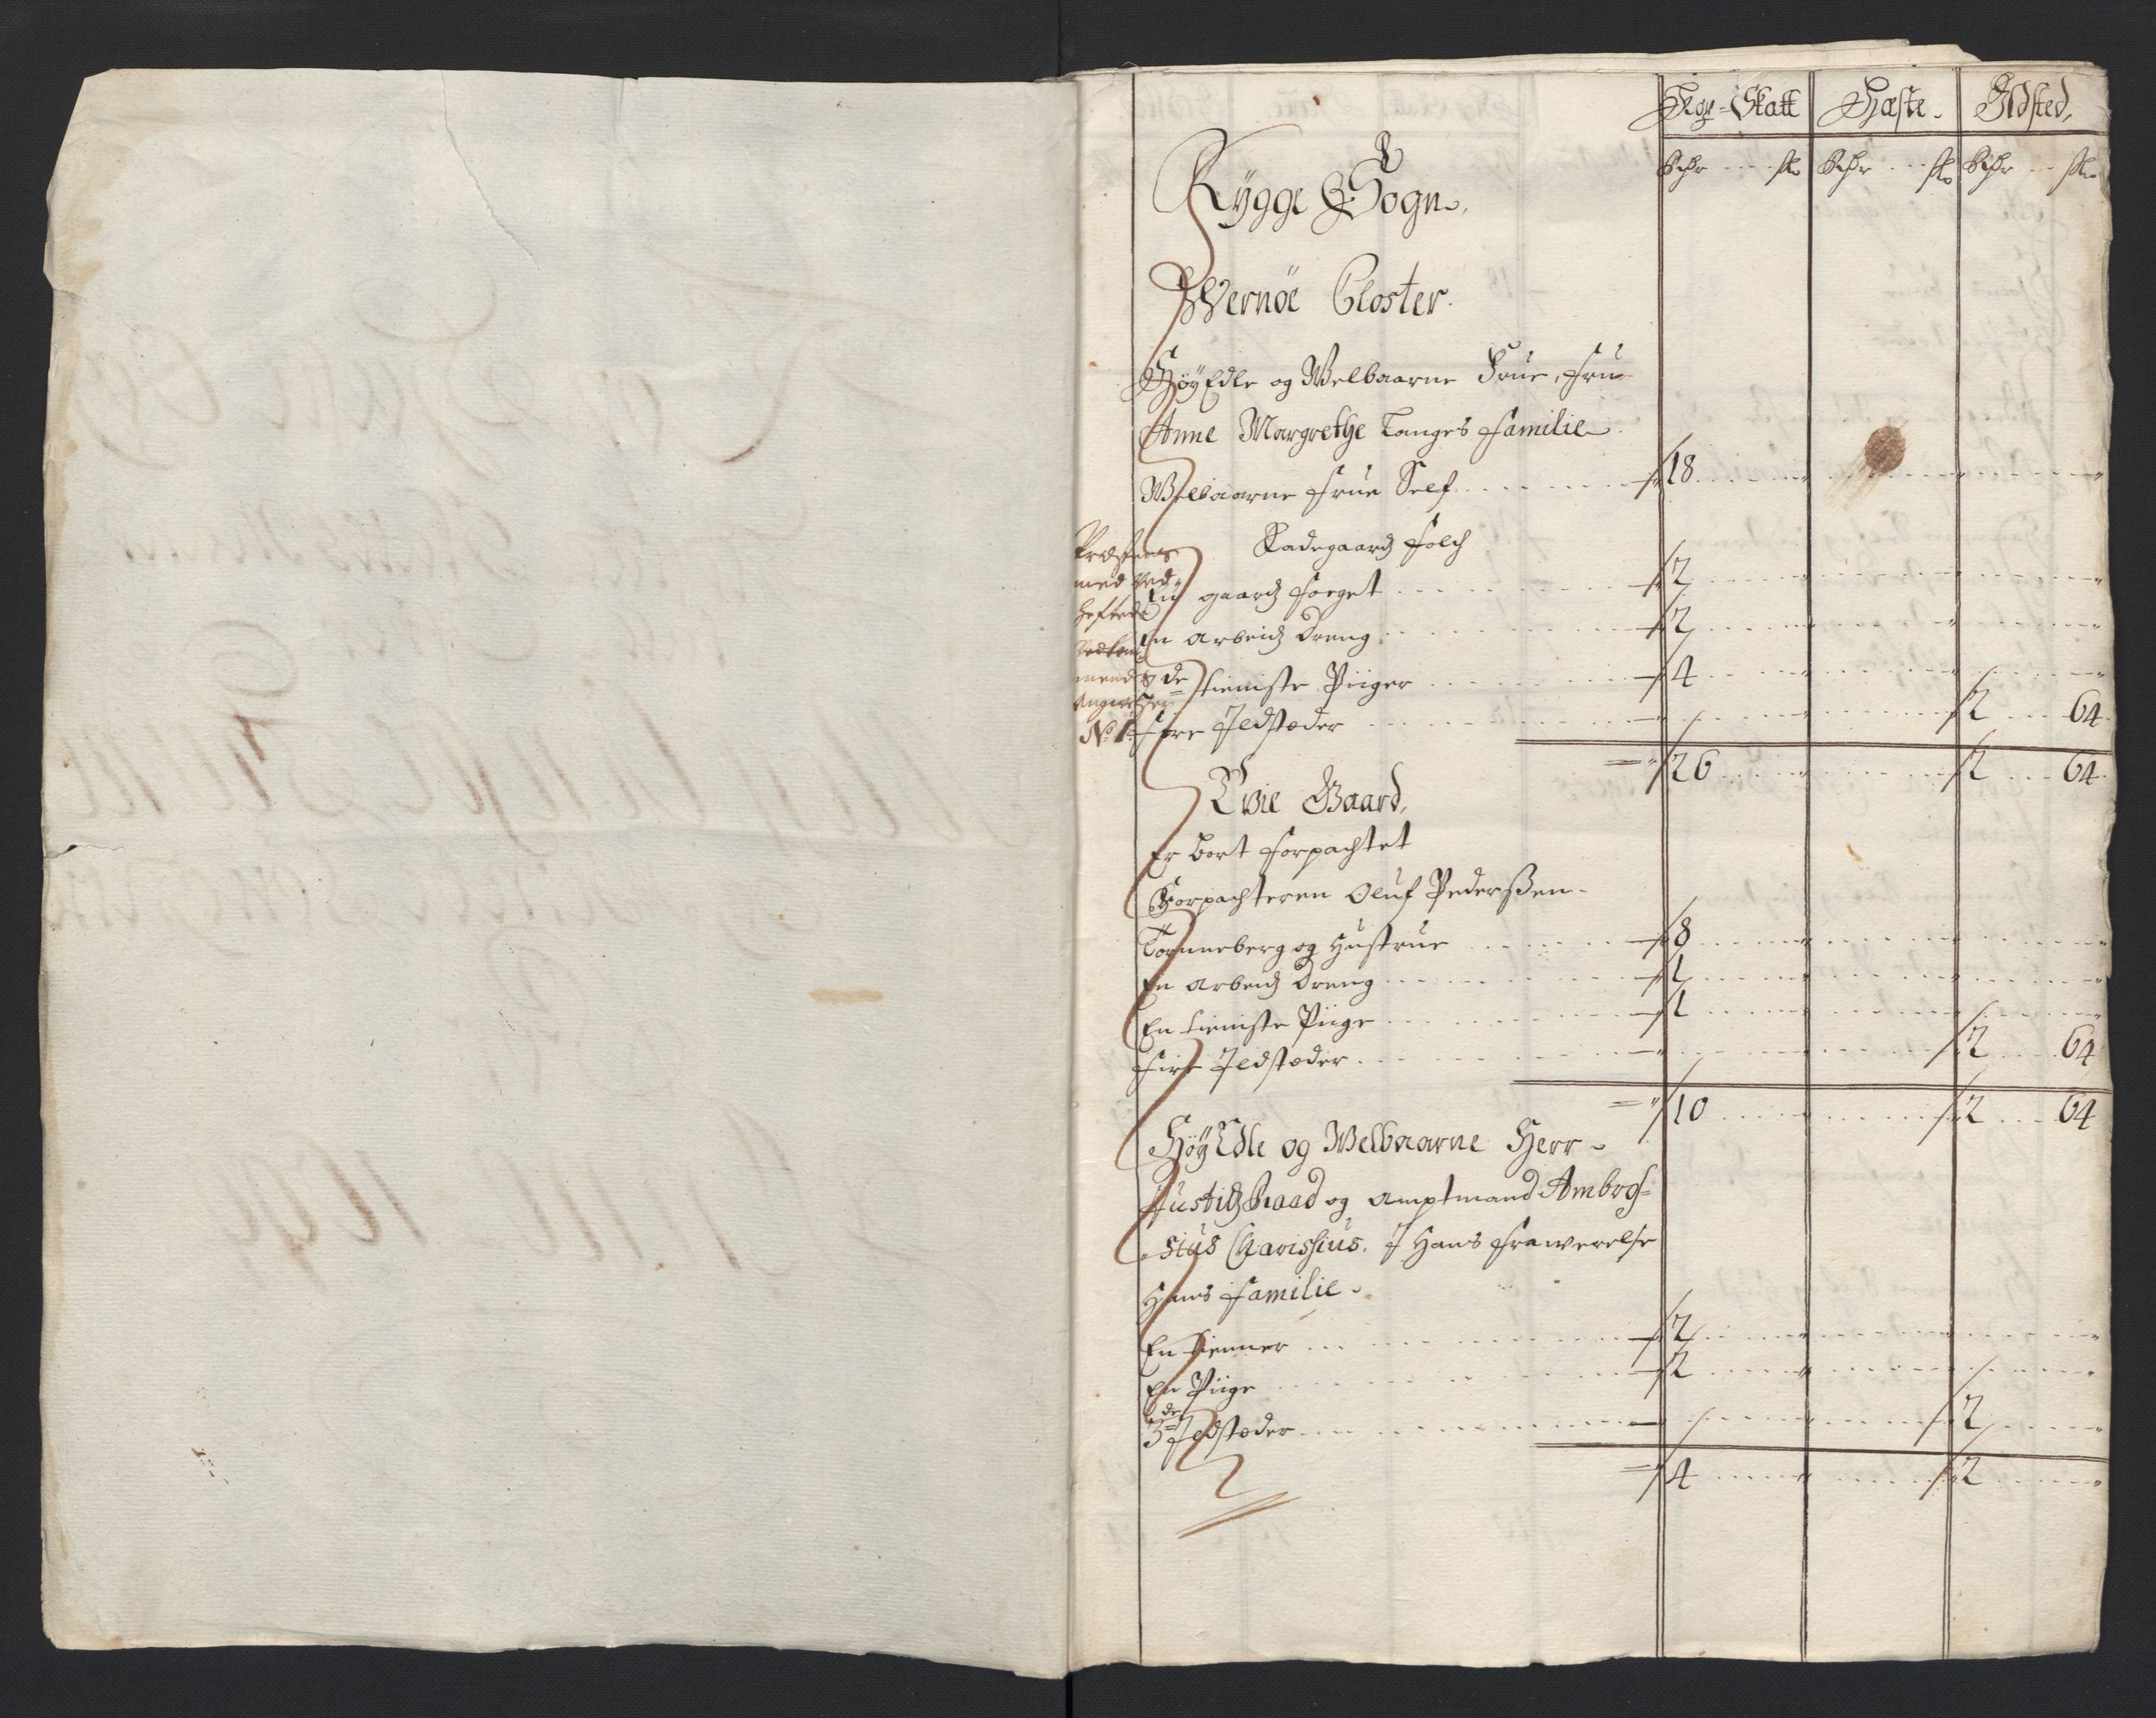 Skatt Hæste. Ildsted,
Rdr ... sk Rdr ... sk Rdr ... sk
Rÿgge Sogn,
Wernöe Closter.
HöyEdle og Welbaarne Frue, Fru
Anne Margrethe Langes Familie
Welbaarne Frue Self 18
Ladegaards Folch
En gaards Foeget 2
En arbeids Dreng 2
de tieniste Piiger 4
Fire Ildstæder 2 64
26 2 64
Evie Gaard,
Er bort forpachtet
Forpachteren Oluf Pederßen
Tonneberg og Hustrue 8
En arbeids Dreng 1
En tieniste Piige 1
Fire Ildstæder 2 64
10 2 64
HöyEdle og Welbaarne Herr
Justitz Raad og Amptmand Ambro=
sius Charisius. I Hans frawerelse
Hans Familie
En tienner 2
En Piige 2
3de Ildstæder 2
4 2
med Ved=
heftede
No 1